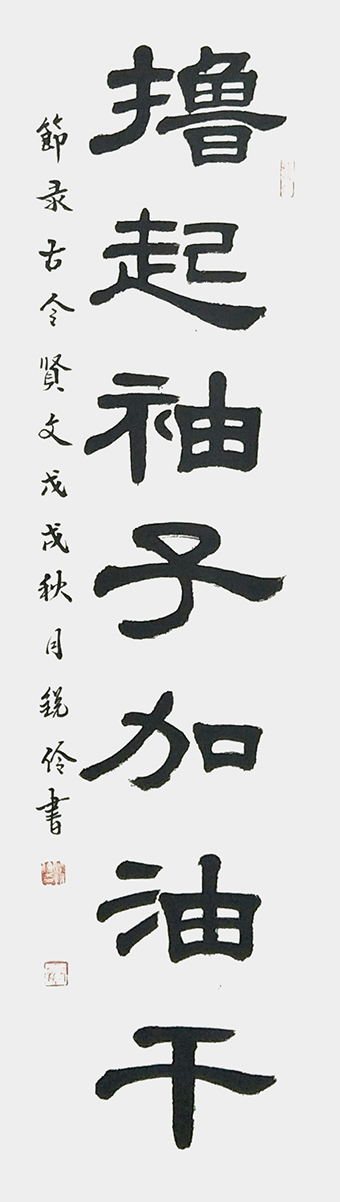 撸起袖子加油干
節录古今贤文戊戌秋月锐伶書